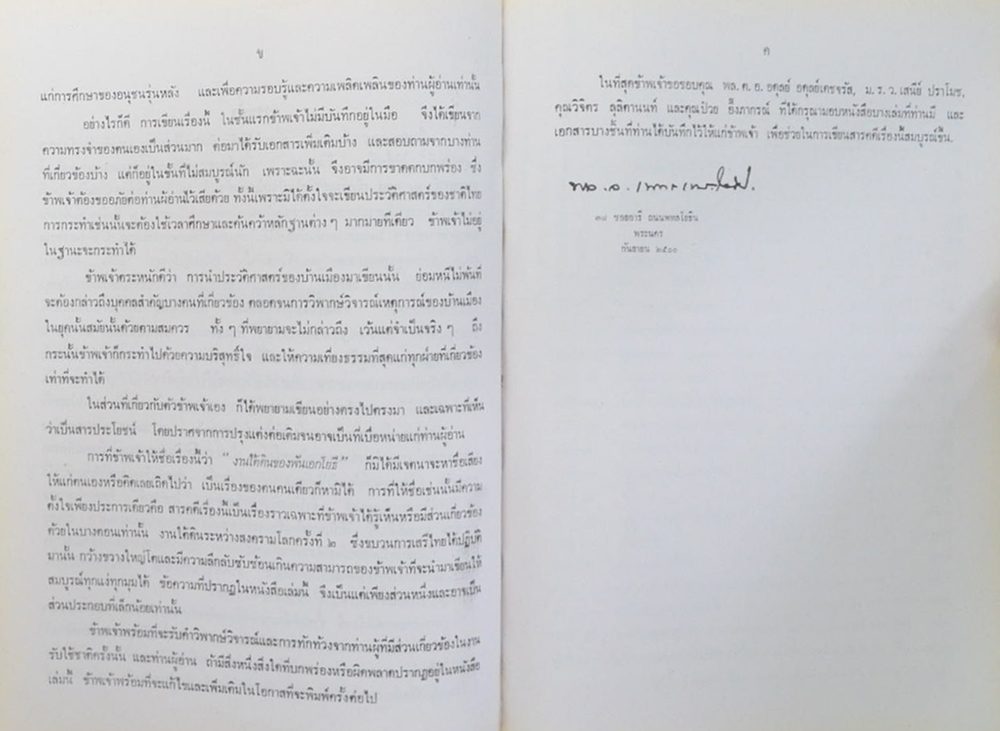 ข
แก่การศึกษาของอนุชนรุ่นหลัง และเพื่อความรอบรู้และความเพลิดเพลินของท่านผู้อ่านเท่านั้น
อย่างไรก็ดี การเขียนเรื่องนี้ ในชั้นแรกข้าพเจ้าไม่มีบันทึกอยู่ในมือ จึงได้เขียนจาก
ความทรงจำของตนเองเป็นส่วนมาก ต่อมาได้รับเอกสารเพิ่มเติมบ้าง และสอบถามจากบางท่าน
ที่เกี่ยวข้องบ้าง แต่ก็อยู่ในชั้นที่ไม่สมบูรณ์นัก เพราะฉะนั้น จึงอาจมีการขาดตกบกพร่อง ซึ่ง
ข้าพเจ้าต้องขออภัยต่อท่านผู้อ่านไว้เสียด้วย ทั้งนี้เพราะมิได้ตั้งใจจะเขียนประวัติศาสตร์ของชาติไทย
การกระทำเช่นนั้นจะต้องใช้เวลาศึกษาและค้นคว้าหลักฐานต่าง ๆ มากมายทีเดียว ข้าพเจ้าไม่อยู่
ในฐานะจะกระทำได้
ข้าพเจ้าตระหนักดีว่า การนำประวัติศาสตร์ของบ้านเมืองมาเขียนนั้น ย่อมหนีไม่พ้นที่
จะต้องกล่าวถึงบุคคลสำคัญบางคนที่เกี่ยวข้อง ตลอดจนการวิพากษ์วิจารณ์เหตุการณ์ของบ้านเมือง
ในยุคนั้นสมัยนั้นด้วยตามสมควร ทั้ง ๆ ที่พยายามจะไม่กล่าวถึง เว้นแต่จำเป็นจริง ๆ ถึง
กระนั้นข้าพเจ้าก็กระทำไปด้วยความบริสุทธิ์ใจ และให้ความเที่ยงธรรมที่สุดแก่ทุกฝ่ายที่เกี่ยวข้อง
เท่าที่จะทำได้
ในส่วนที่เกี่ยวกับตัวข้าพเจ้าเอง ก็ได้พยายามเขียนอย่างตรงไปตรงมา และเฉพาะที่เห็น
ว่าเป็นสารประโยชน์ โดยปราศจากการปรุงแต่งต่อเติมจนอาจเป็นที่เบื่อหน่ายแก่ท่านผู้อ่าน
การที่ข้าพเจ้าให้ชื่อเรื่องนี้ว่า "งานใต้ดินของพันเอกโยธี" ก็มิได้มีเจตนาจะหาชื่อเสียง
ให้แก่ตนเองหรือคิดเลยเถิดไปว่า เป็นเรื่องของตนคนเดียวก็หามิได้ การที่ให้ชื่อเช่นนั้นมีความ
ตั้งใจเพียงประการเดียวคือ สารคดีเรื่องนี้เป็นเรื่องราวเฉพาะที่ข้าพเจ้าได้รู้เห็นหรือมีส่วนเกี่ยวข้อง
ด้วยในบางตอนเท่านั้น งานใต้ดินระหว่างสงครามโลกครั้งที่ ๒ ซึ่งขบวนการเสรีไทยได้ปฏิบัติ
มานั้น กว้างขวางใหญ่โตและมีความลึกลับซับซ้อนเกินความสามารถของข้าพเจ้าที่จะนำมาเขียนให้
สมบูรณ์ทุกแง่ทุกมุมได้ ข้อความที่ปรากฏในหนังสือเล่มนี้ จึงเป็นแต่เพียงส่วนหนึ่งและอาจเป็น
ส่วนประกอบที่เล็กน้อยเท่านั้น
ข้าพเจ้าพร้อมที่จะรับคำวิพากษ์วิจารณ์และการทักท้วงจากท่านผู้ที่มีส่วนเกี่ยวข้องในงาน
รับใช้ชาติครั้งนั้น และท่านผู้อ่าน ถ้ามีสิ่งหนึ่งสิ่งใดที่บกพร่องหรือผิดพลาดปรากฏอยู่ในหนังสือ
เล่มนี้ ข้าพเจ้าพร้อมที่จะแก้ไขและเพิ่มเติมในโอกาสที่จะพิมพ์ครั้งต่อไป
ค
ในที่สุดข้าพเจ้าขอขอบคุณ พล.ต.อ. อดุลย์ อดุลย์เดชจรัส, ม.ร.ว. เสนีย์ ปราโมช,
คุณวิจิตร ลุลิตานนท์ และคุณป๋วย อึ๊งภากรณ์ ที่ได้กรุณามอบหนังสือบางเล่มที่ท่านมี และ
เอกสารบางชิ้นที่ท่านได้บันทึกไว้ให้แก่ข้าพเจ้า เพื่อช่วยในการเขียนสารคดีเรื่องนี้สมบูรณ์ขึ้น.
ซอยอารี ถนนพหลโยธิน
พระนคร
กันยายน ๒๕๐๐